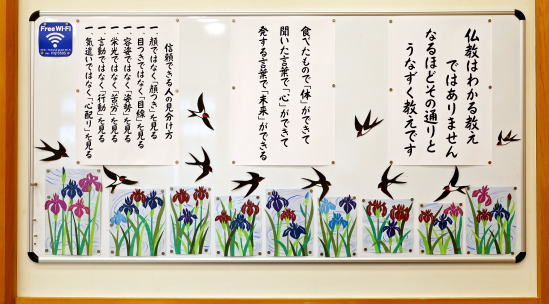 仏教はわかる教え
ではありません
なるほどその通りと
うなずく教えです
食べたもので「体」ができて
聞いた言葉で「心」ができて
発する言葉で「未来」ができる
信頼できる人の見分け方
一、顔ではなく「顔つき」を見る
一、目つきではなく「目線」を見る
一、容姿ではなく「姿勢」を見る
一、栄光ではなく「苦労」を見る
一、言動ではなく「行動」を見る
一、気遣いではなく「心配り」を見る
Free Wi-Fi